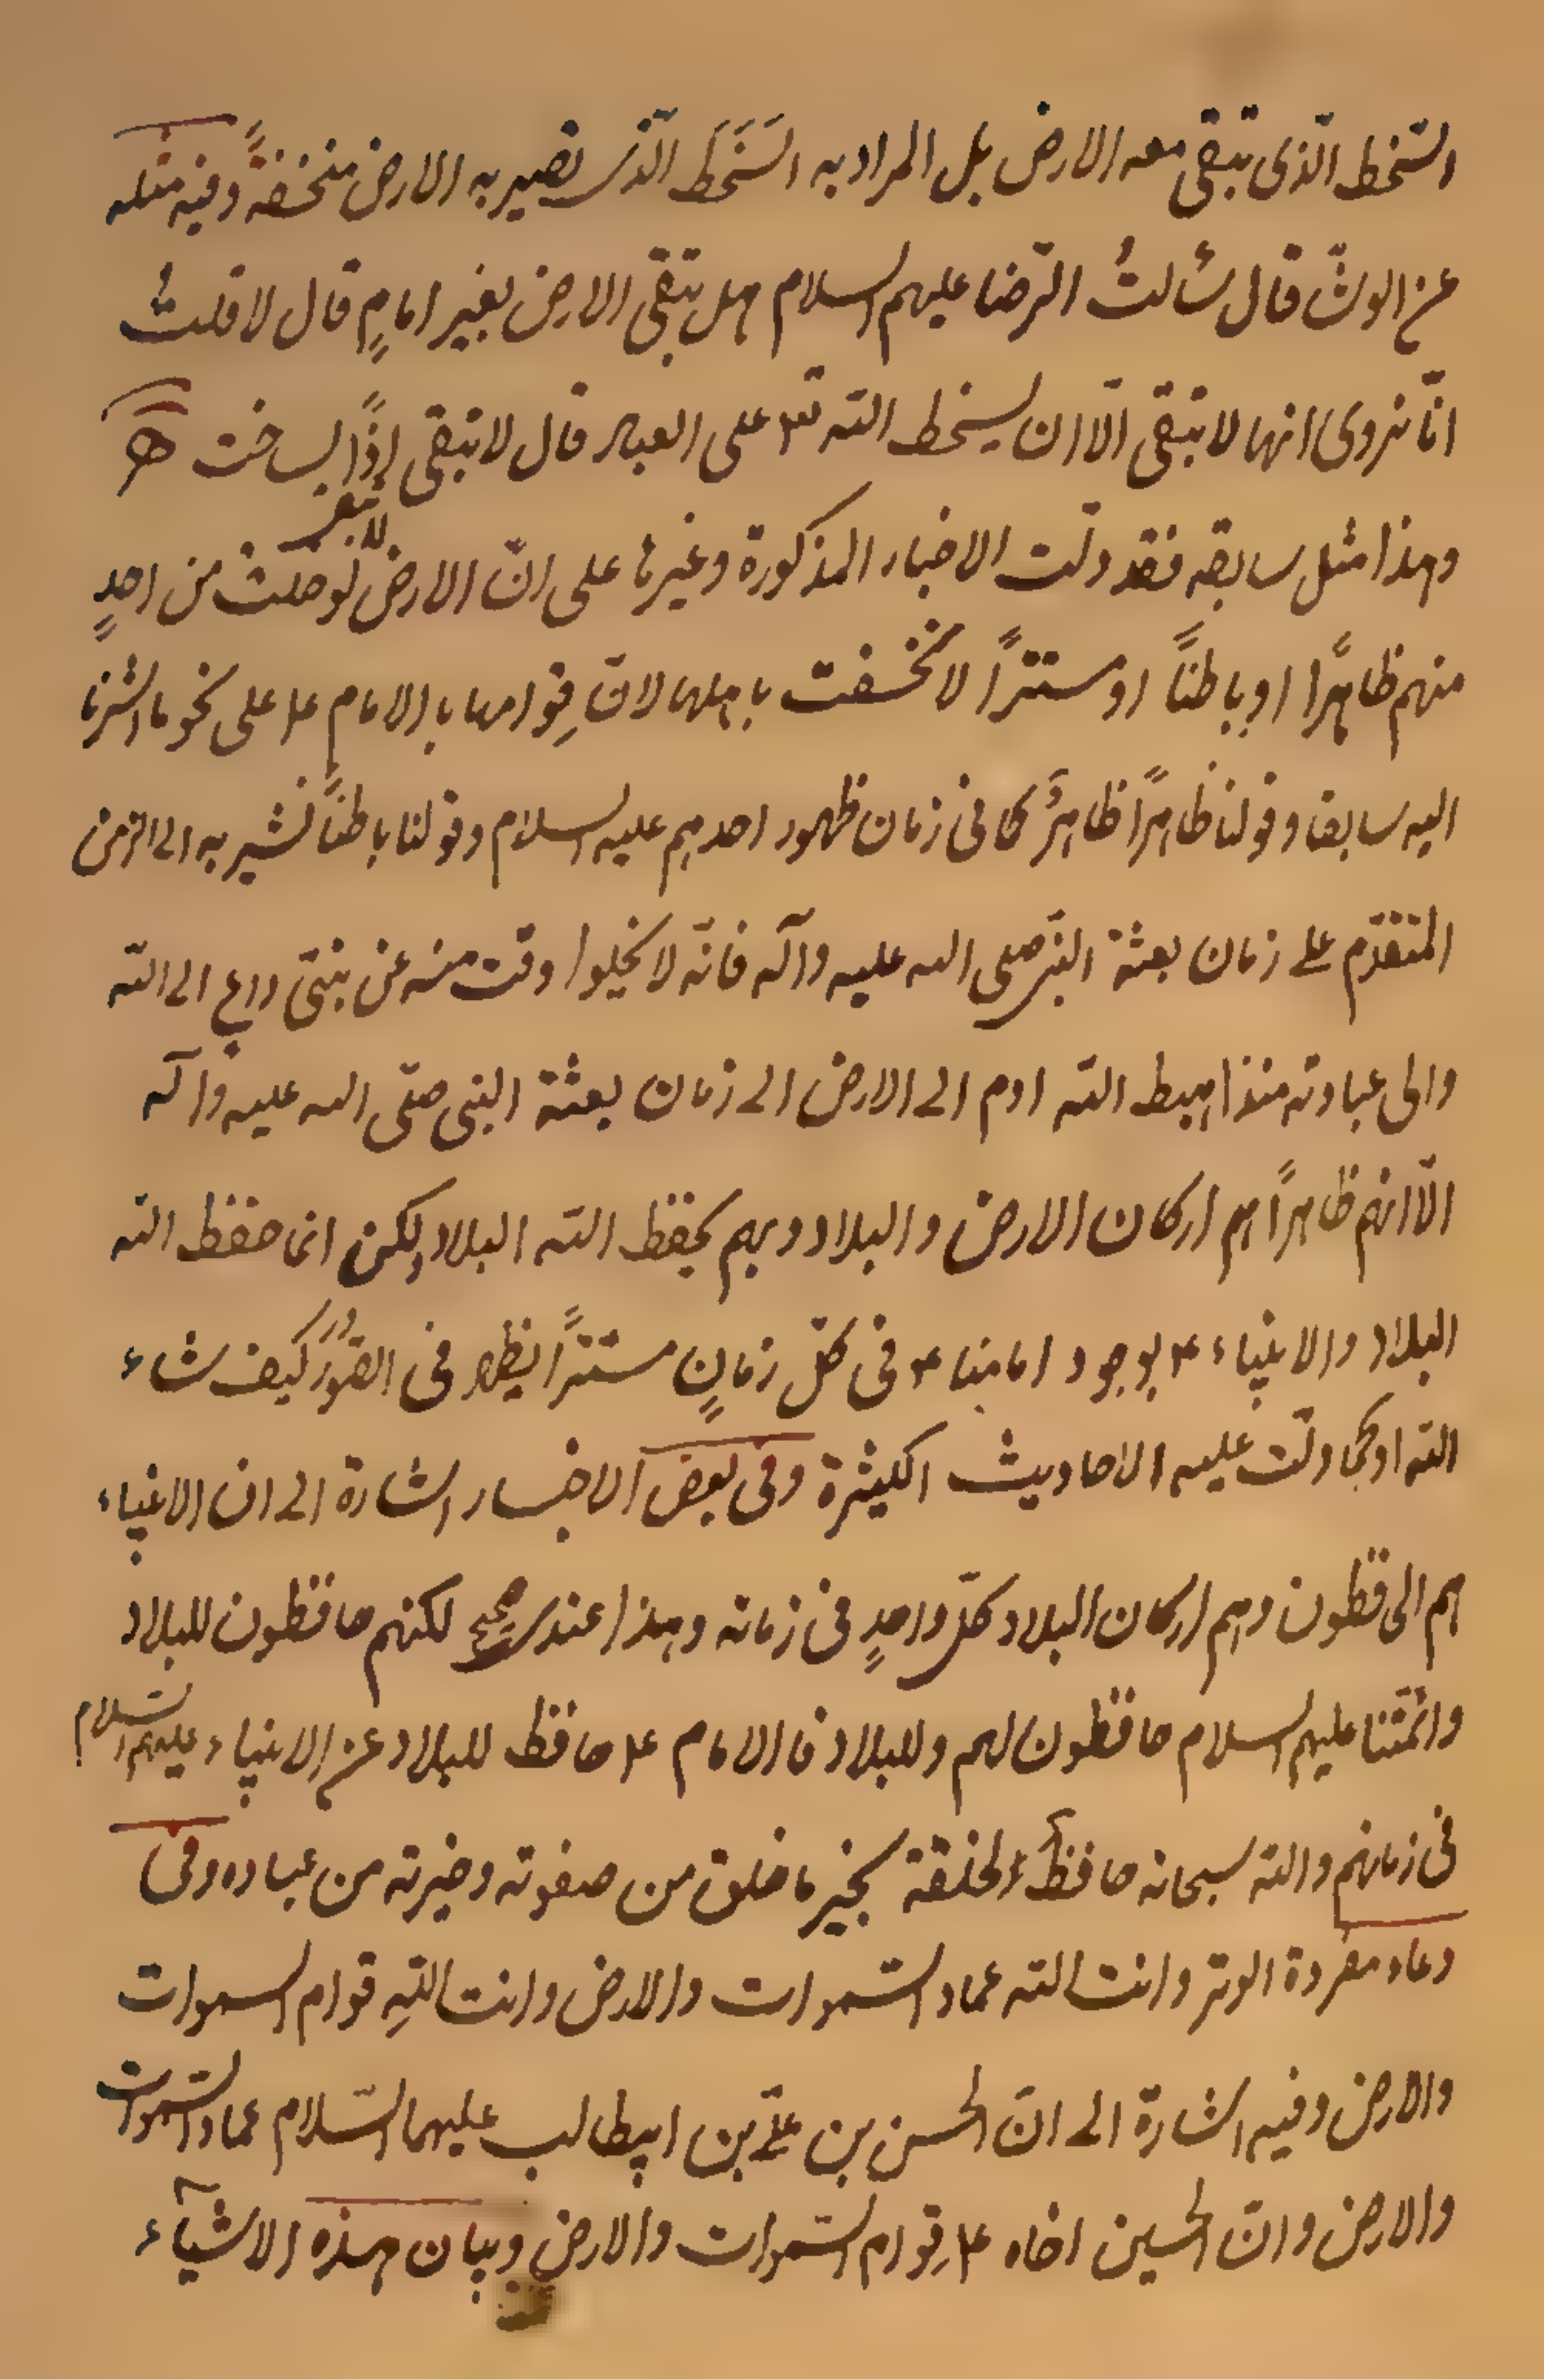 السّخط الّذى تبقى معه الارض بل المراد به السَخَطَ الّذى تصير به الارض منخسفةً وفيه مثله
عن الوشّا قال سئلتُ الرّضا عليهم السلام هل تبقى الارض بغير امامٍ قال لا قلتُ
انّا نروى انها لا تبقى الّا ان يسخط اللّه تع۴ على العباد قال لا تبقى اذًا لساخت
وهذا مثل سابقه فقد دلّت الاخبار المذكورة وغيرها على انّ الارض لو خلت من احدٍ
منهم ظاهرًا او باطنًا او مستترًا لانخسفت باهلها لانّ قِوامها بالامام ع۴ على نحو ما اشرنا
اليه سابقا وقولنا ظاهرًا ظاهرٌ كما فى زمان ظهور احدهم عليه السلام وقولنا باطنًا نشير به الى الزمن
المتقدّم على زمان بعثة النبى صلى الله عليه وآله فانّه لا يخلوا وقت منه عن نبىّ داعٍ الى اللّه
والى عبادته منذ اهبط اللّه ادم الى الارض الى زمان بعثة النبى صلّى الله عليه وآله
الّا انهم ظاهراً هم اركان الارض والبلاد وبهم يحفظ اللّه البلاد ولكن انما حفظ اللّه
البلاد والانبياء ع۴ بوجود امامنا ع۴ فى كلّ زمانٍ مستترًا يظهر فى الصُوَر كيف شاء
اللّه او كما دلّت عليه الاحاديث الكثيرة وفى بعض الاخبار اشارة الى ان الانبياء
هم الحافظون وهم اركان البلاد كلّ واحدٍ فى زمانه وهذا عندى صحيح لكنهم حافظون للبلاد
وائمّتنا عليهم السلام حافظون لهم وللبلاد فالامام ع۴ حافظ للبلاد عن الانبياء عليهم السّلام
فى زمانهم واللّه سبحانه حافظٌ لخلقه بخير ما خلق من صفوته وخيرته من عباده وفى
دعاء مفردة الوتر وانت اللّه عماد السّموات والارض وانت اللّهِ قوام السموات
والارض وفيه اشارة الى انّ الحسن بن علىّ بن ابيطالب عليهما السّلام عماد السّموات
والارض وانّ الحسين اخاه ع۴ قِوام السّموات والارض وبيان هذه الاشيآء